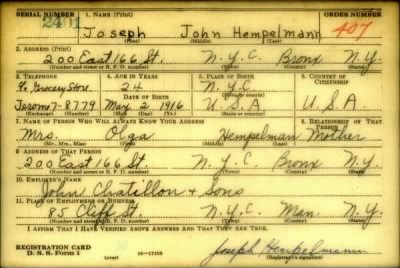 SERIAL NUMBER 1. NAME (Print) ORDER NUMBER
2401 Joseph John Hempelmann 407
(First) (Middle) (Last)
2. ADDRESS (Print)
200 East 166 St. N.Y.C. Bronx N.Y.
(Number and street or R. F. D. number) (Town) (County) (State)
3. TELEPHONE 4. AGE IN YEARS 5. PLACE OF BIRTH 6. COUNTRY OF CITIZENSHIP
% Grocery Store. 24 N.Y.C.
DATE OF BIRTH
Jerom 7-8779 May 2 1916 U.S.A U.S.A.
(Exchange) (Number) (Mo.) (Day) (Yr.) (State or country)
7. NAME OF PERSON WHO WILL ALWAYS KNOW YOUR ADDRESS 8. RELATIONSHIP OF THAT PERSON
Mrs. Olga Hempelman Mother
(Mr., Mrs., Miss) (First) (Middle) (Last)
9. ADDRESS OF THAT PERSON
200 East 166 St N.Y.C. Bronx N.Y.
(Number and street or R. F. D. number) (Town) (County) (State)
10. EMPLOYER'S NAME
John Chatillon & Sons
11. PLACE OF EMPLOYMENT OR BUSINESS
85 Cliff St N.Y.C. Man. N.Y.
(Number and street or R. F. D. number) (Town) (County) (State)
I AFFIRM THAT I HAVE VERIFIED ABOVE ANSWERS AND THAT THEY ARE TRUE.
REGISTRATION CARD
D. S. S. Form 1 16—17105 Joseph Hempelmann
(Registrant's signature)